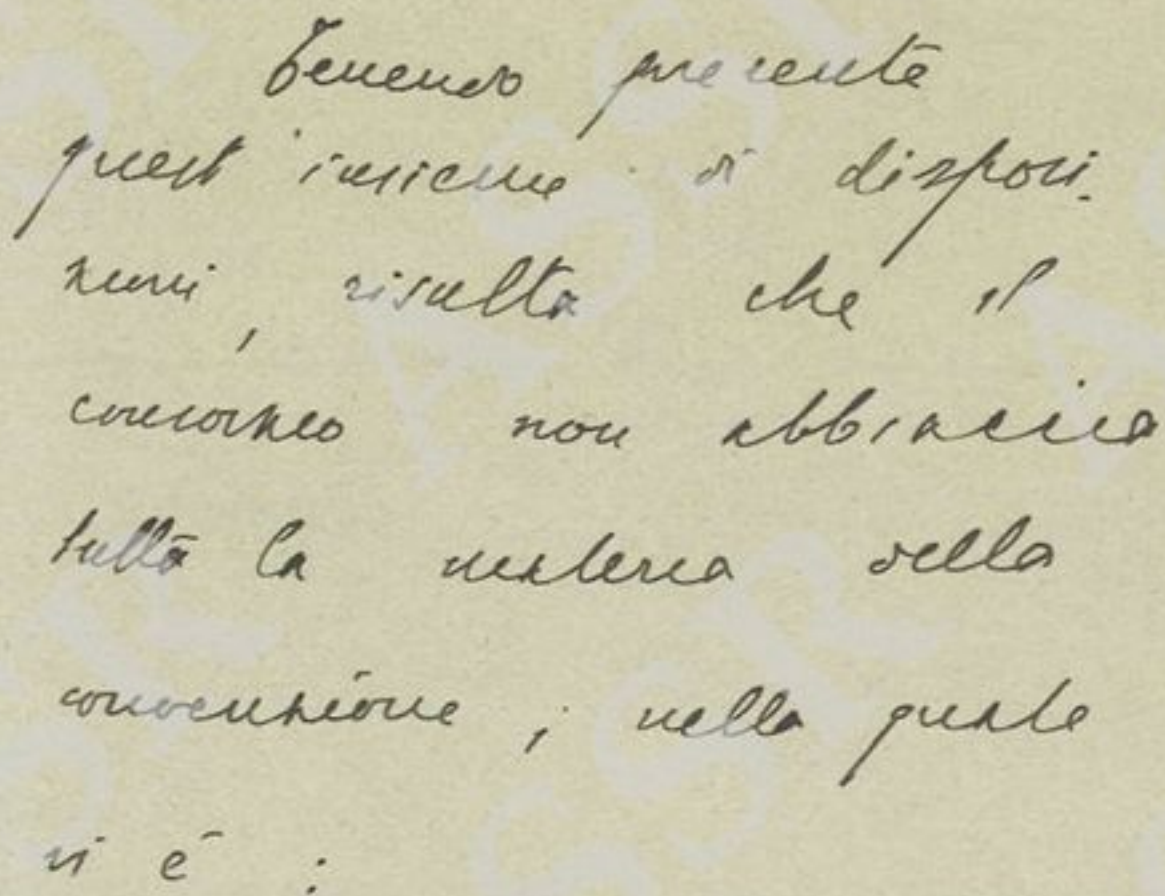 Tenendo presente
quest'insieme di disposi-
zioni, risulta che il
consorzio non abbraccia
tutta la materia della
convenzione; nella quale
vi è :